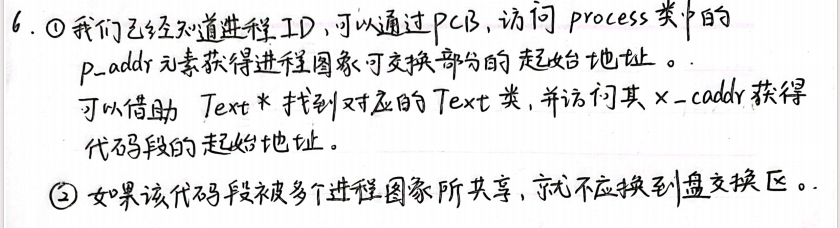 6. ① 我们已经知道进程ID，可以通过PCB，访问 process 类中的
p_addr 元素获得进程图象可交换部分的起始地址。
可以借助 Text * 找到对应的 Text 类，并访问其 x_caddr 获得
代码段的起始地址。
② 如果该代码段被多个进程图象所共享，就不应换到盘交换区。